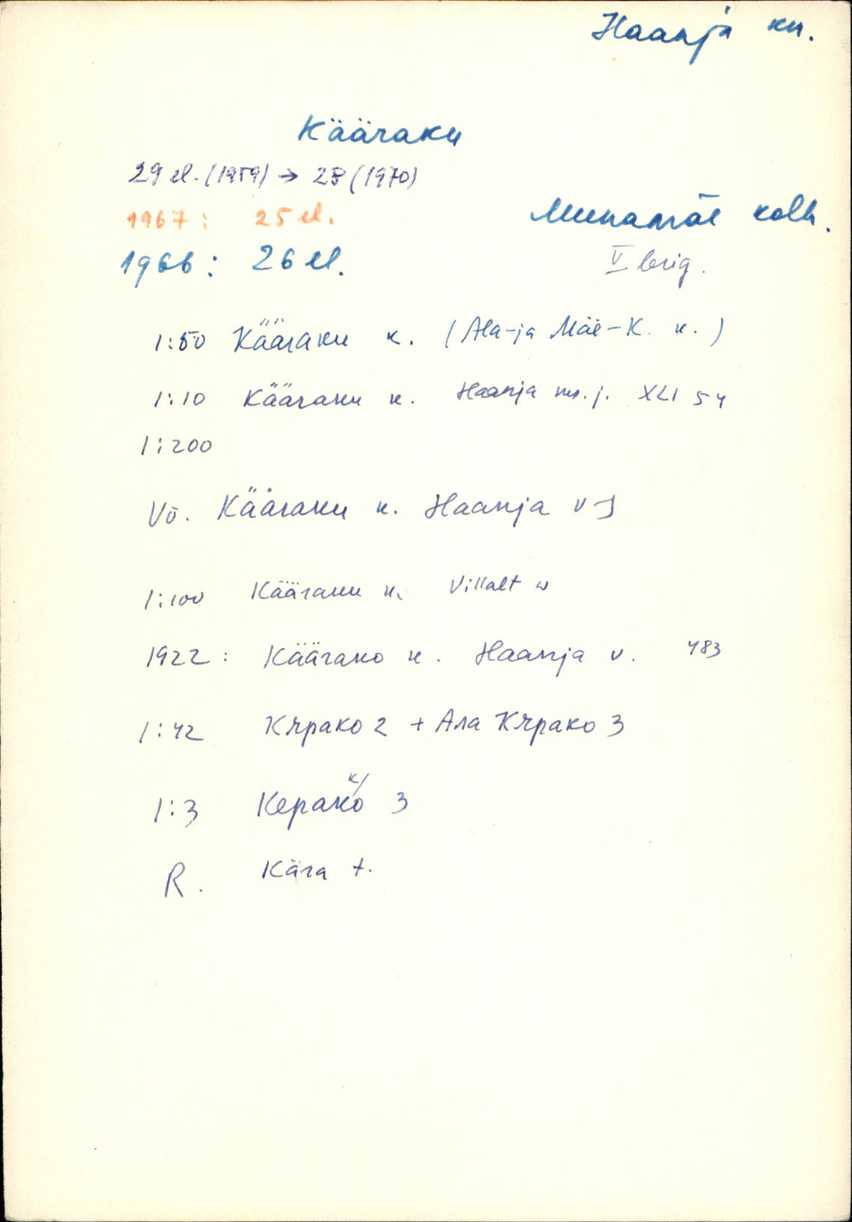 Haanja kn.
Kääraku
29 el. (1959) → 28 (1970)
1967: 25 el.
Munamäe kolh.
1966: 26 el.
V brig.
1:50 Kääraku k. (Ala- ja Mäe-K. k.)
1:10 Kääraku k. Haanja XLI 54
1:200
Võ. Kääraku k. Haanja v
1:100 Kääraku k. Villalt
1922: Käärako k. Haanja v. 483
1:42 Кярако 2 + Ала Кярако 3
1:3 Керако 3
R. Kära t.